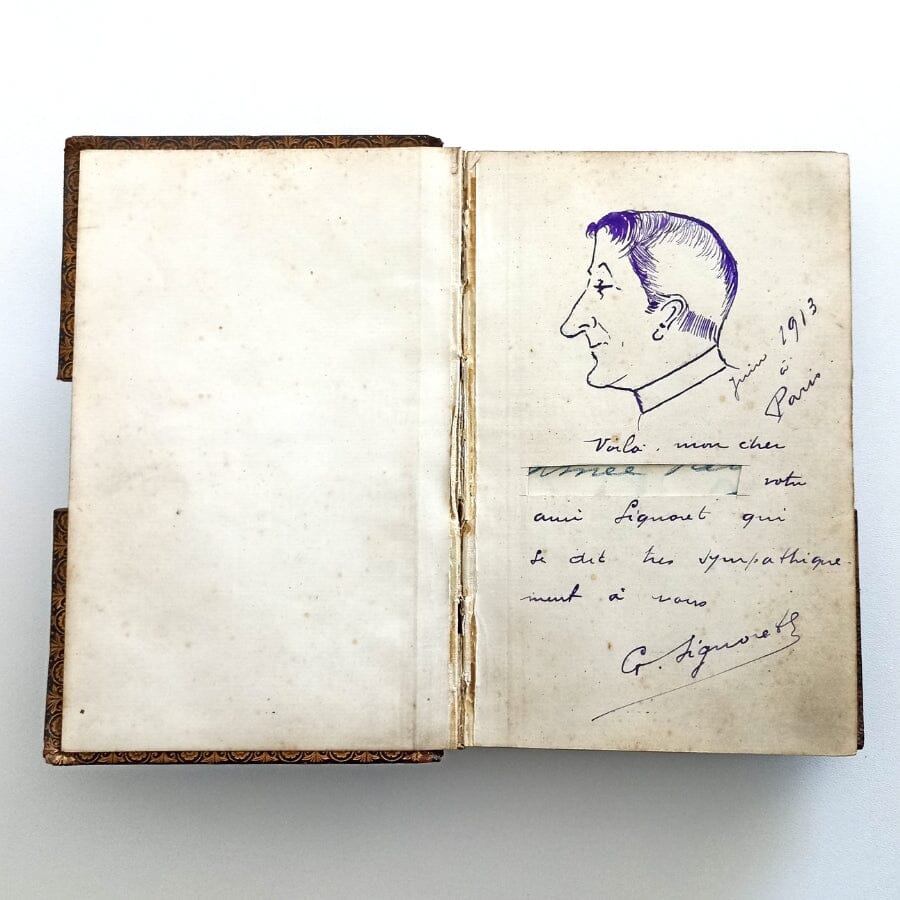 Juin 1913
à
Paris
Voilà mon cher
votre
ami Signoret qui
se dit très sympathique-
ment à vous
G. Signoret